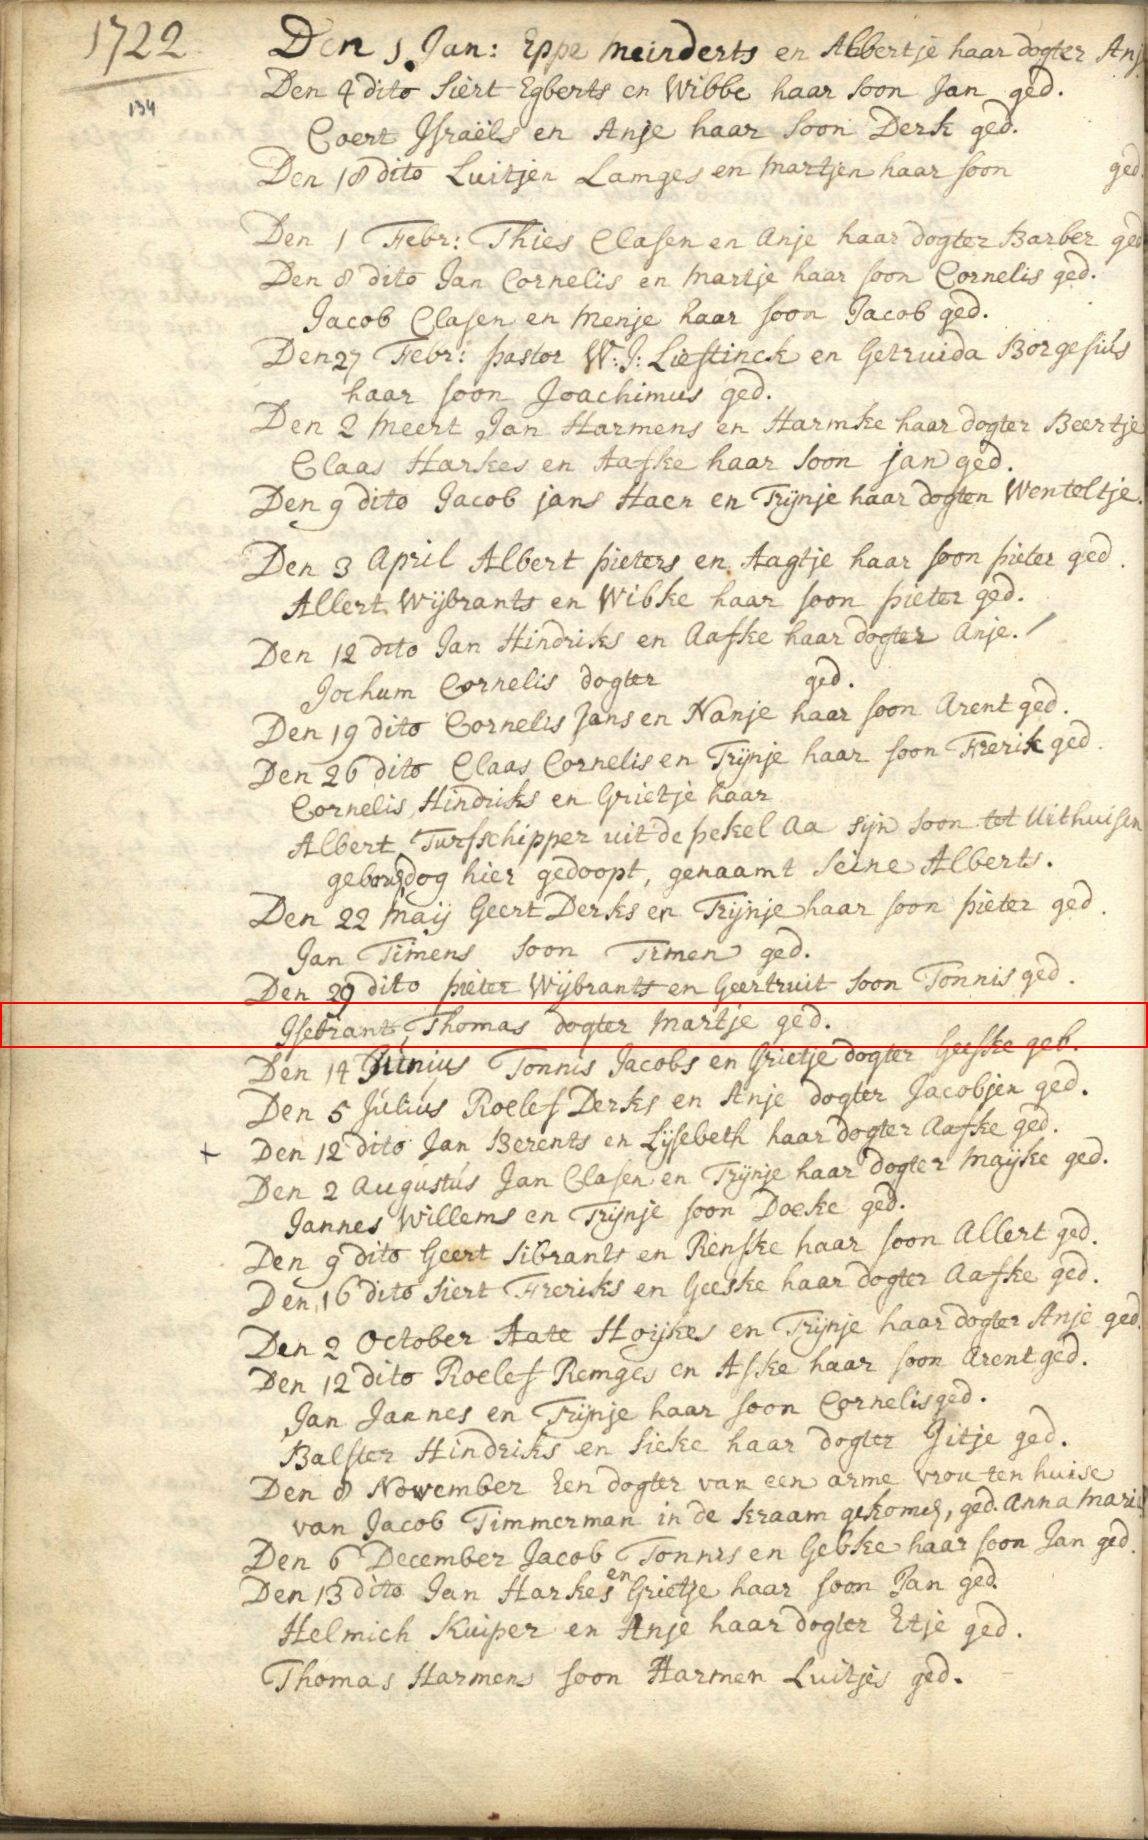 1722
134
Den 1 Jan: Eppe Meinderts en Albertje haar dogter Anj
Den 4 dito Siert Egberts en Wibbe haar soon Jan ged.
Coert Israëls en Anje haar soon Derk ged.
Den 18 dito Luitjen Lamges en Martjen haar soon ged.
Den 1 Febr: Thies Clasen en Anje haar dogter Barber ged
Den 8 dito Jan Cornelis en Martje haar soon Cornelis ged.
Jacob Clasen en Menje haar soon Jacob ged.
Den 27 Febr: pastor W: J: Liestinck en Getruida Borgesius
haar soon Joachimus ged.
Den 2 Meert Jan Harmens en Harmke haar dogter Beertje
Claas Harkes en Aafke haar soon jan ged.
Den 9 dito Jacob jans Haen en Trijnje haar dogten Wenteltje.
Den 3 April Albert pieters en Aagtje haar soon pieter ged.
Allert Wijbrants en Wibke haar soon pieter ged.
Den 12 dito Jan Hindriks en Aafke haar dogter Anje.
Jochum Cornelis dogter ged.
Den 19 dito Cornelis Jans en Nanje haar soon Arent ged.
Den 26 dito Claas Cornelis en Trijnje haar soon Frerik ged.
Cornelis Hindriks en Grietje haar
Albert Turfschipper uit de pekel Aa sijn soon tot Uithuisen
geboren dog hier gedoopt, genaamt Seine Alberts.
Den 22 Maij Geert Derks en Trijnje haar soon pieter ged.
Jan Timens soon Timen ged.
Den 29 dito pieter Wijbrants en Geertruit soon Tonnis ged.
Isebrant Thomas dogter Martje ged.
Den 14 Junius Tonnis Jacobs en Grietje dogter Geeske geb.
Den 5 Julius Roelef Derks en Anje dogter Jacobjen ged.
+ Den 12 dito Jan Berents en Lijsebeth haar dogter Aafke ged.
Den 2 Augustus Jan Clasen en Trijnje haar dogter Maijke ged.
Jannes Willems en Trijnje soon Doeke ged.
Den 9 dito Geert Sibrants en Rienske haar soon Allert ged.
Den 16 dito Siert Freriks en Geeske haar dogter Aafke ged.
Den 2 October Aate Hoijkes en Trijnje haar dogter Anje ged.
Den 12 dito Roelef Remges en Afke haar soon Arent ged.
Jan Jannes en Trijnje haar soon Cornelis ged.
Balster Hindriks en Sieke haar dogter Jitje ged.
Den 8 November Een dogter van een arme vrou ten huise
van Jacob Timmerman in de kraam gekomen, ged. Anna Mari
Den 6 December Jacob Tonnis en Gebke haar soon Jan ged.
Den 13 dito Jan Harkes en Grietje haar soon Jan ged.
Helmich Kuiper en Anje haar dogter Etje ged.
Thomas Harmens soon Harmen Luitjes ged.